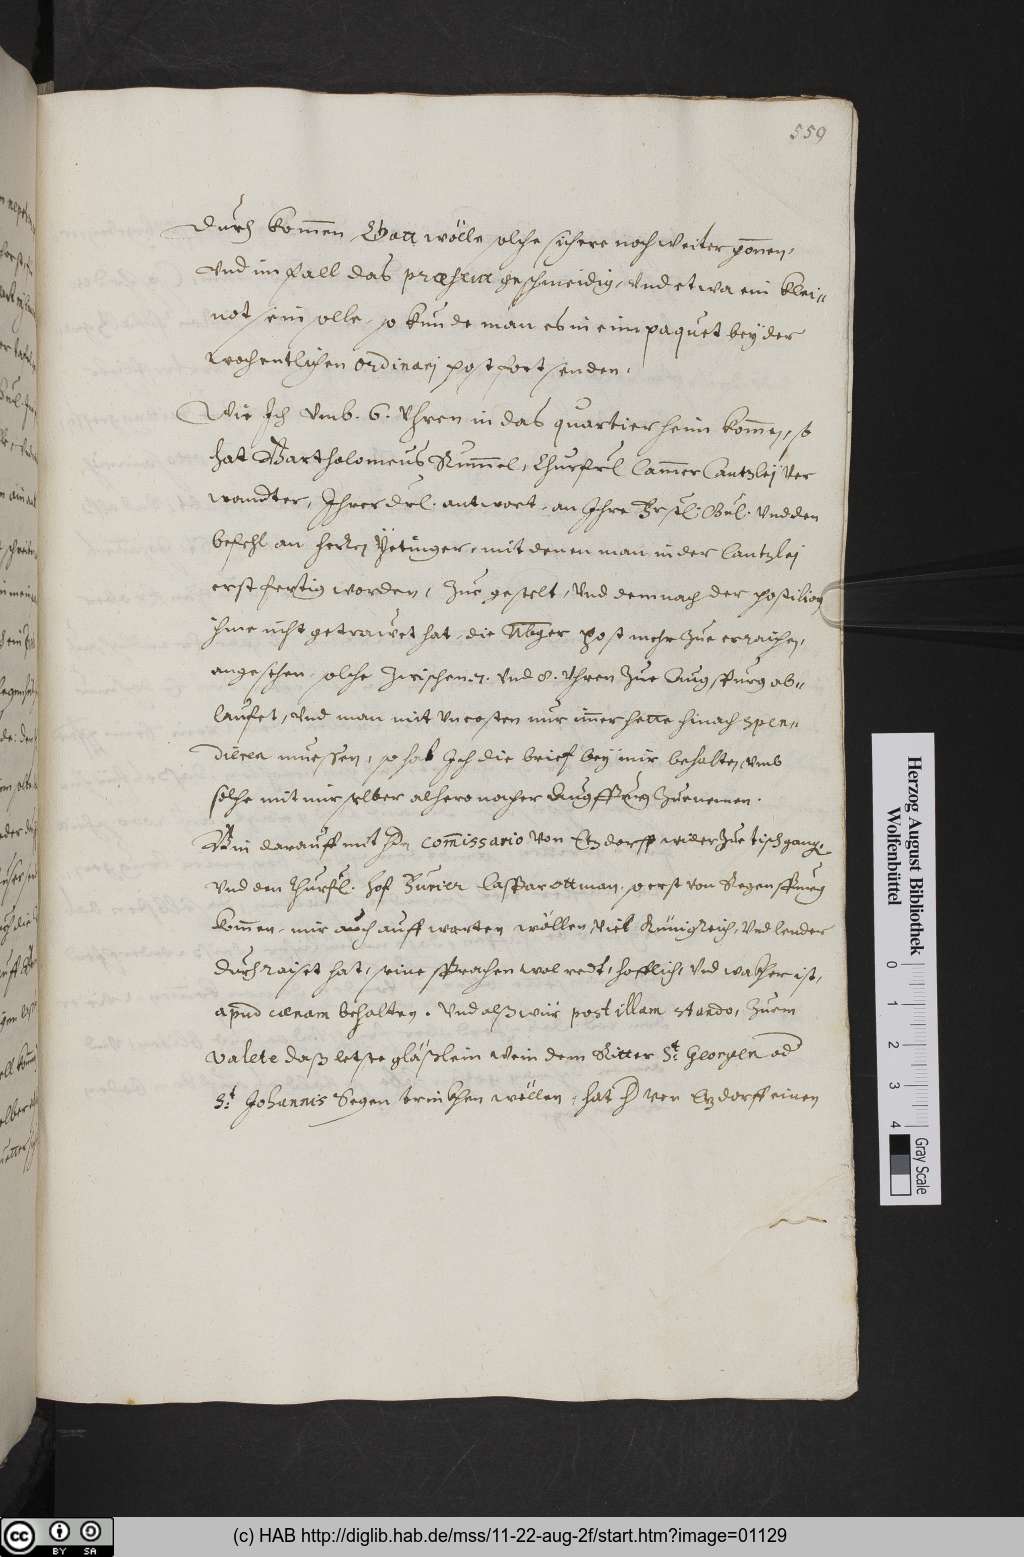 559
durch kommen, Gott wölle solche sicher noch weiter gonnen,
Vnd im fall das præsent geschmeidig, Vnd etwa ein klei=
not sein solle, so kunde man es in eim paquet beÿ der
wochentlichen ordinarj post fortsenden.
Wie Ich Vmb. 6. Vhren in das quartier heim kom̄en, so
hat Bartholomeus Rum̄el, Churfrl Cam̄er Cantzleÿ Ver
wandter, Ihrer drl. antwort, an Ihre Frstl. Gnl. Vnd den
befehl an herrn Yetinger, mit denen man in der Cantzlej
erst fertig worden, Zue gestelt, Vnd demnach der postilion
ihme nicht getrawet hat, die Nbger post mehr Zue erraichen,
angesehen, solche Zwischen 7. Vnd 8. Vhren Zue Augspurg ab=
laufet, Vnd man mit Vncosten nur im̄er hette hinach spen=
dieren muessen, so hab Ich die brief beÿ mir behalten, Vmb
solche mit mir selber alhero nacher Augspurg Zuenemen.
Bin darauff mit hrn com̄issario von Etzdorff wider Zue tisch gang
Vnd den Churfl. hof Furier Casspar ottman, so erst von Regenspurg
kom̄en, mir auch auff warten wöllen, Viel Künigreich, Vnd lender
durchraiset hat, seine sprachen wol redt, hofflich, Vnd wakher ist,
apud cænam behalten. Vnd alß wür post illam stando, Zuem
Valete daß letste gläßlein wein dem Ritter St: Georgen od
St: Johannis Segen trinkhen wöllen, hat h von Etzdorff einen
Herzog August Bibliothek
Wolfenbüttel
0 1 2 3 4
Gray Scale
(c) HAB http://diglib.hab.de/mss/11-22-aug-2f/start.htm?image=01129
cc BY SA